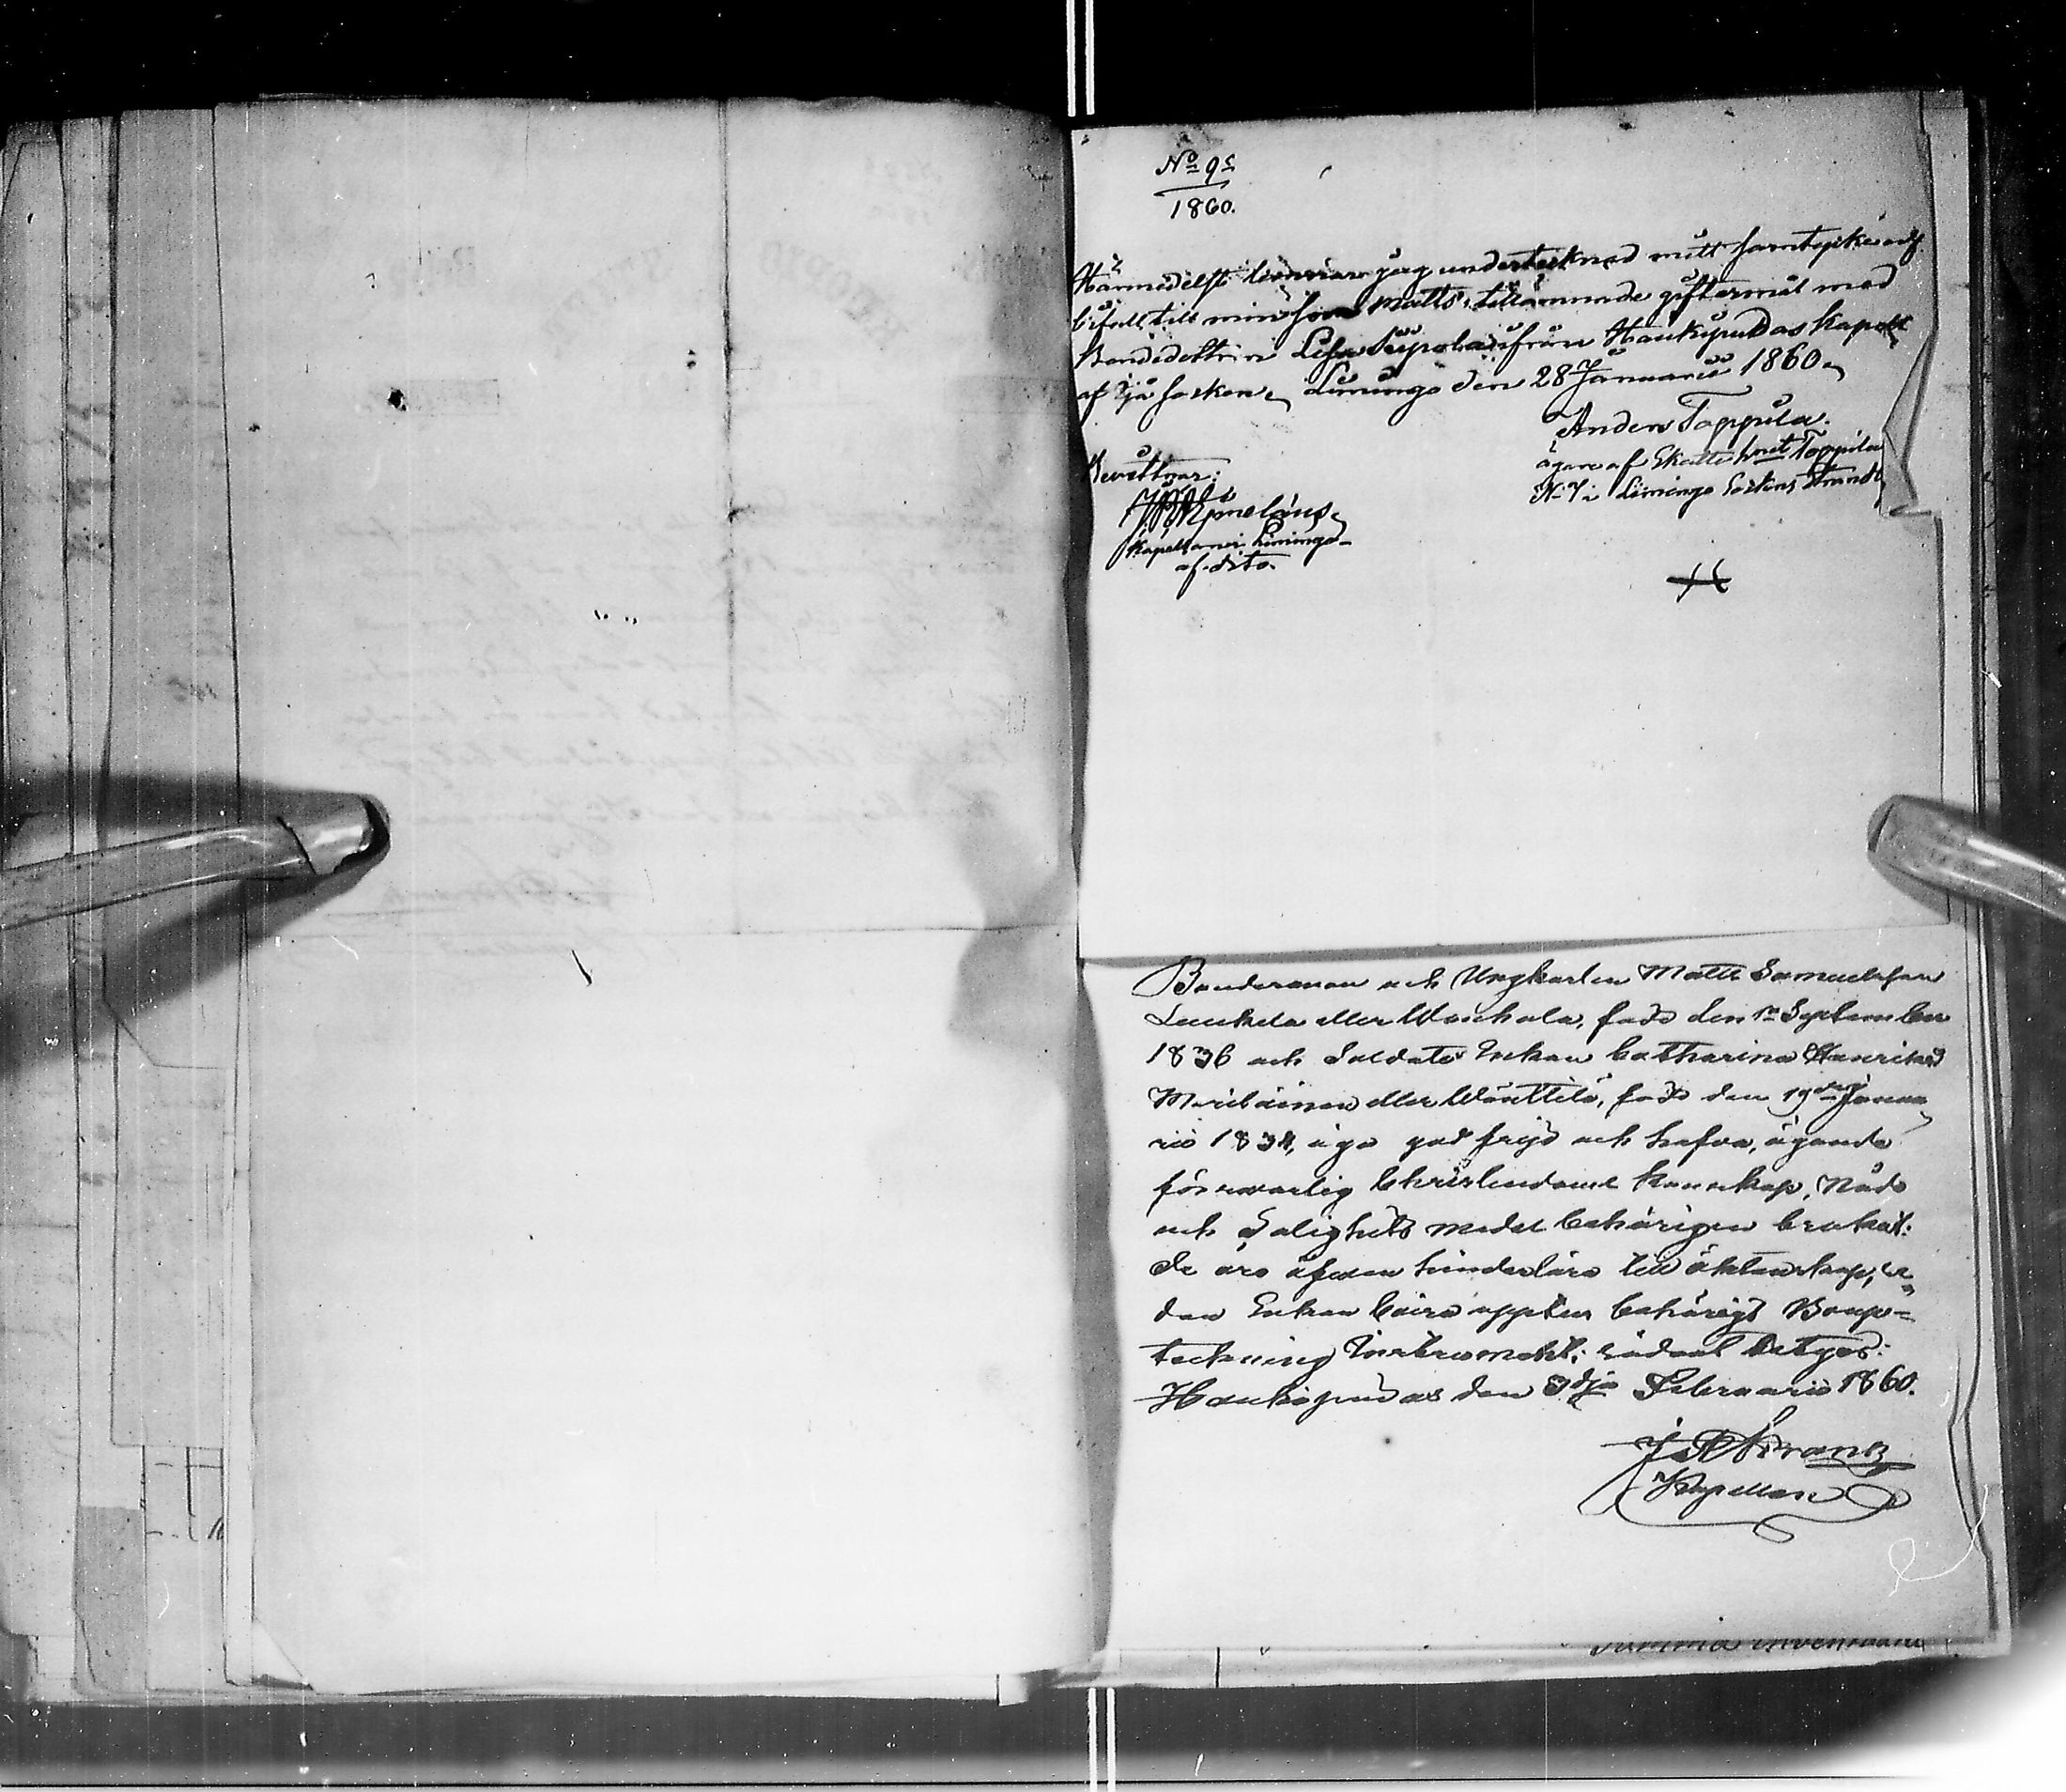 No 9
1860.
Härmedelst lemnar jag undertecknad mitt samtycke och
bifall till min son Matts' tillämnade giftermål med
Bondedottren Lisa Siipola ifrån Haukipudas Kapell
af Ijå socken, Limingo den 28 Januarii 1860.
Anders Toppila.
ägare af Skatte hmt Toppila
No 7 i Limingo Sockens Strand
Bevittnar:
Kapellan i Limingo
af dito.
Bondesonen och Ungkarlen Matts Samuelsson
Luukela eller Wanhala, född den 1 September
1836 och Soldats Enkan Catharina Henriksd
Meriläinen eller Wänttilä, född den 19de Janua
rii 1834, äga god frejd och hafva, ägande
försvarlig Christendoms kunskap, Nåde
och Salighets medel behörigen brukat.
De äro äfven hinderlösa till äktenskap, se
dan Enkan låtit upprätta behörigt Boupp-
teckning Instrument; sådant betygas:
Haukipudas den 3dje Februarii 1860.
Frantz
Kapellan
Summa Inventarii